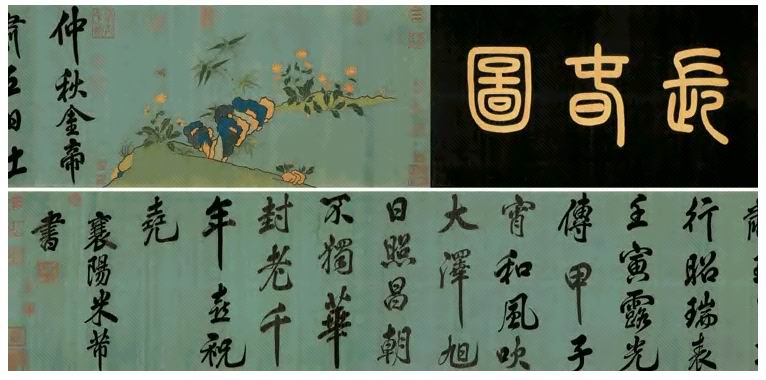 長旾圖
仲秋金帝
肅五日土
行昭瑞表
壬寅露光
傳甲子
宵和風吹
大澤旭
日照昌朝
不獨華
封老千
年喜祝
堯
襄陽米芾
書